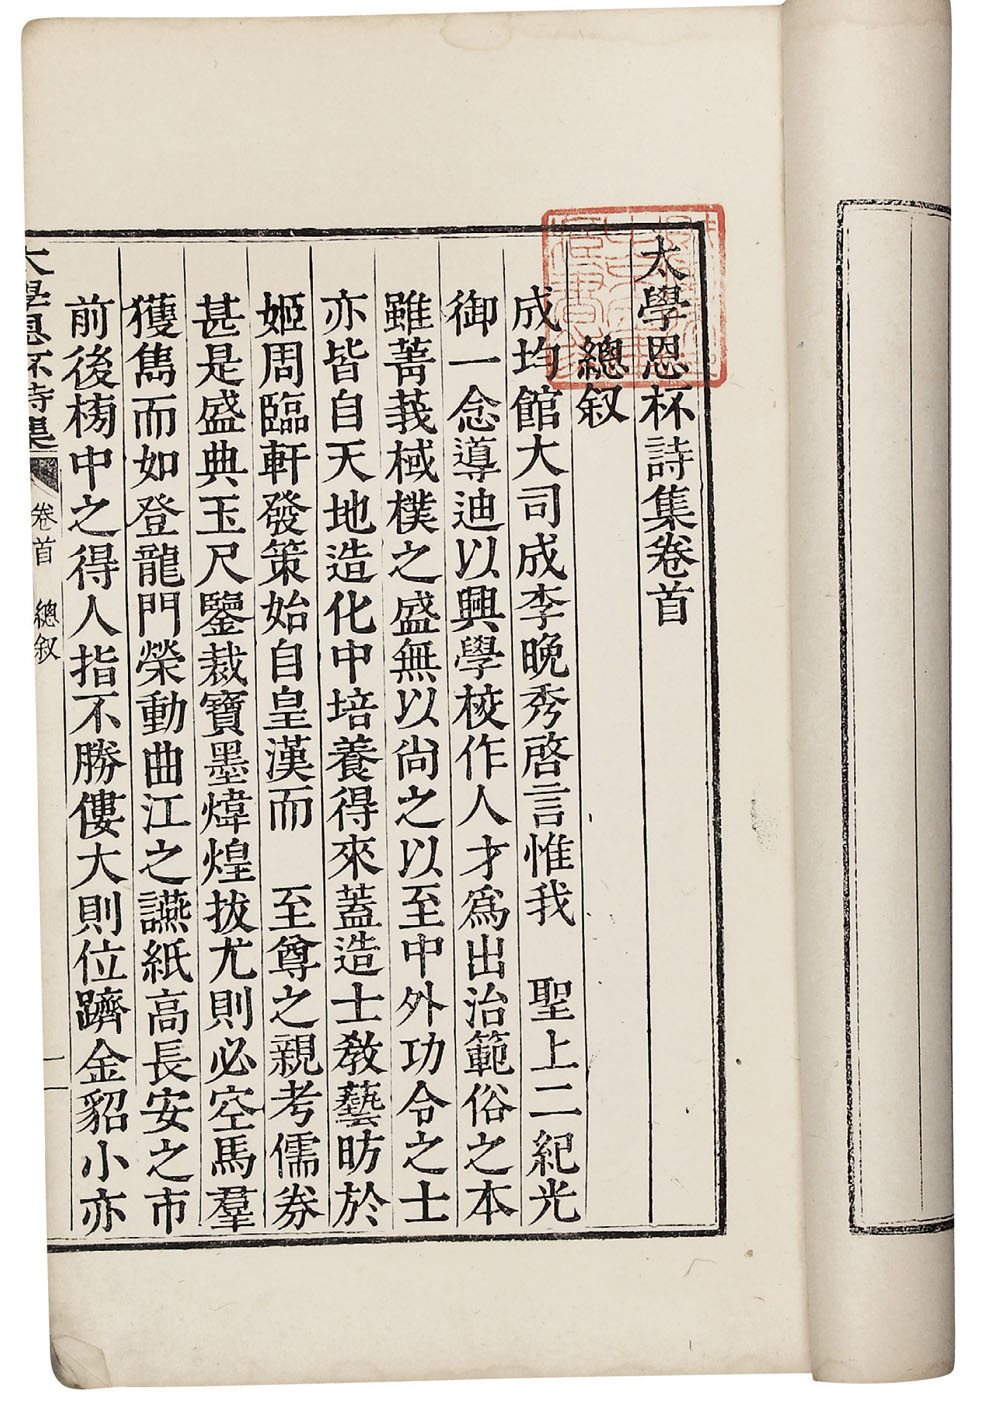 太學恩杯詩集卷首
總叙
成均館大司成李晚秀啓言惟我　聖上二紀光
御一念導迪以興學校作人才爲出治範俗之本
雖菁莪棫樸之盛無以尙之以至中外功令之士
亦皆自天地造化中培養得來蓋造士敎藝昉於
姬周臨軒發策始自皇漢而　至尊之親考儒券
甚是盛典玉尺鑒裁寶墨煒煌拔尤則必空馬羣
獲雋而如登龍門榮動曲江之讌紙高長安之市
前後榜中之得人指不勝僂大則位躋金貂小亦
太學恩杯詩集　卷首　總叙　一